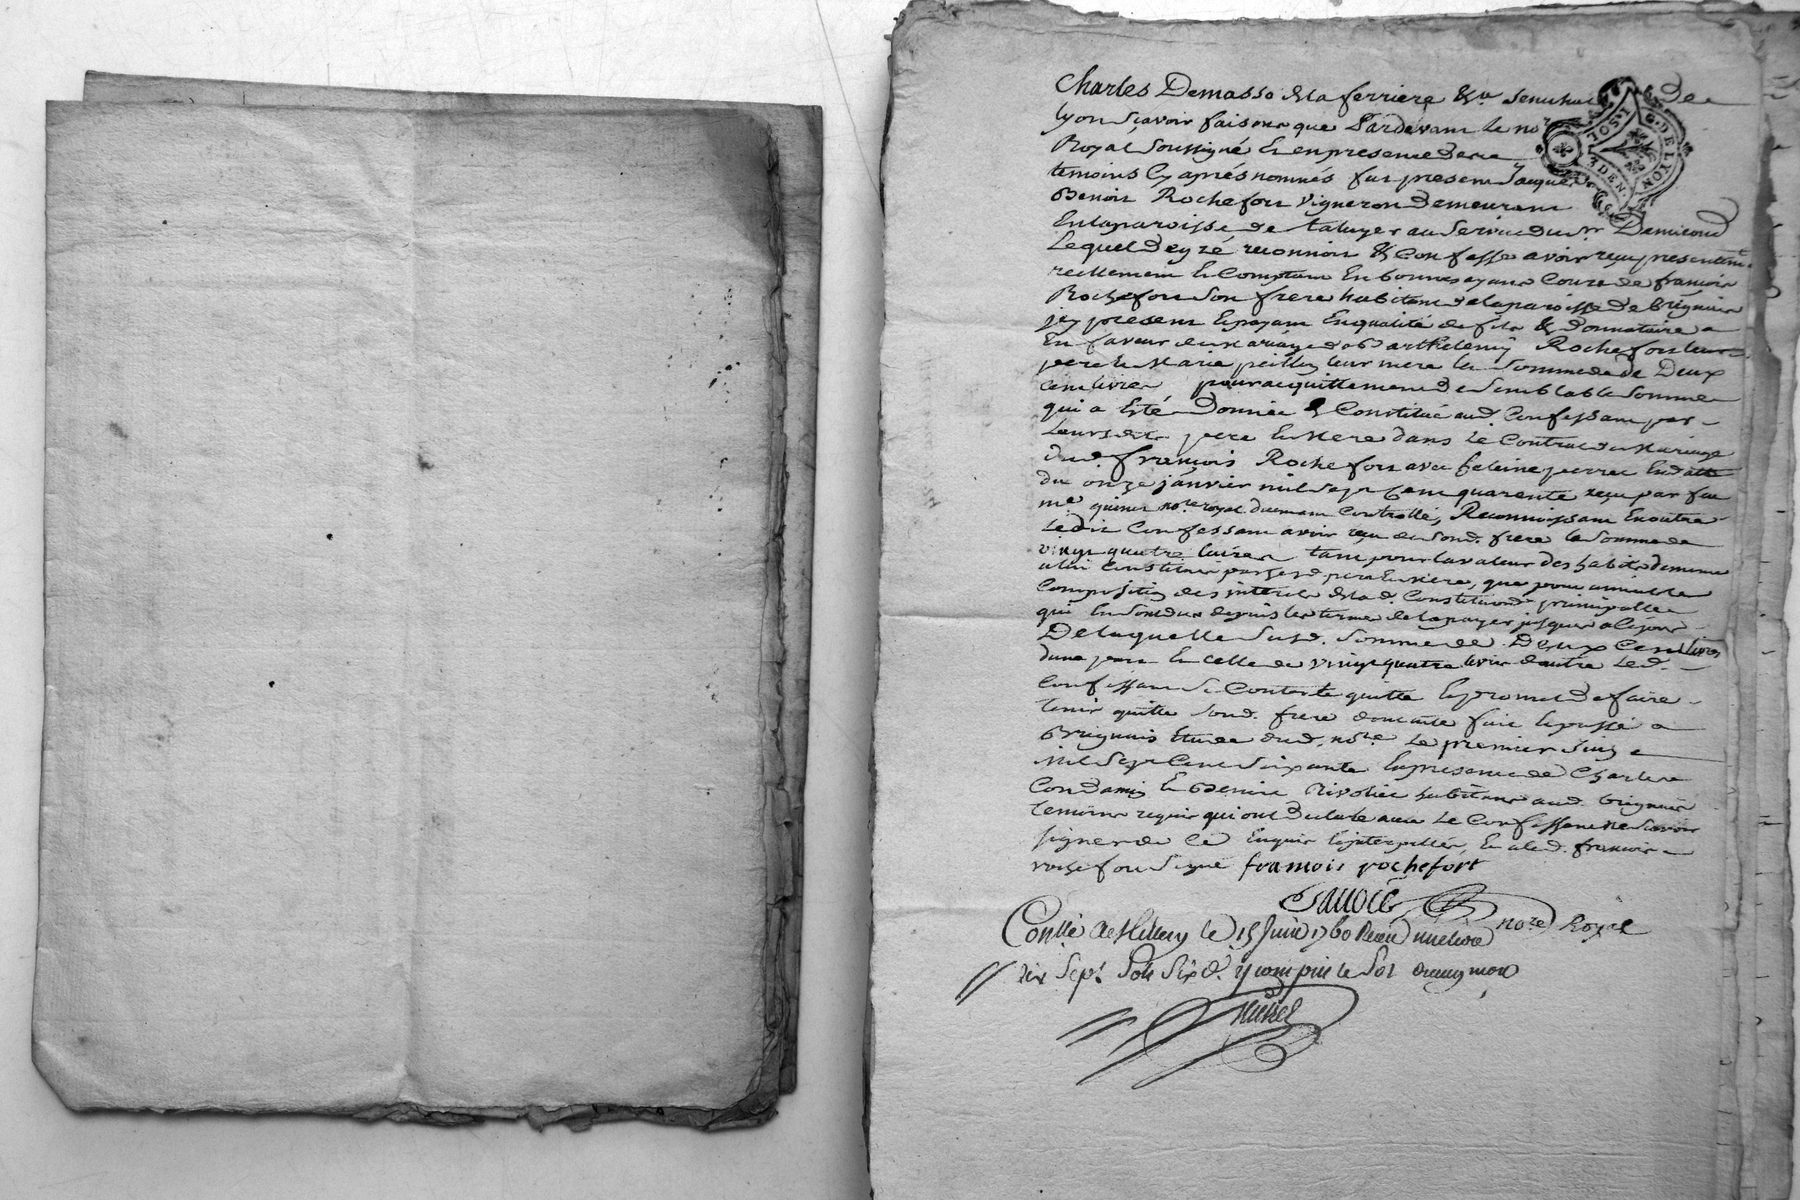 Charles Demasso de la ferriere &c.a senechal de
Lyon Sçavoir faisons que Pardevant le no.re
Royal Soussigné & en presence des
temoins cy après nommés fut present Jacques
Benoit Rochefort vigneron demeurant
En la paroisse de taluyer au service du Sr Demicoud
Lequel de gré reconnoit & Confesse avoir reçu presentem.t
reellement & Comptant En bonnes ayant Cours de francois
Rochefort Son frere habitant de la paroisse de brignais
icy present & payant En qualité de fils & donnataire
En faveur de mariage de b. barthelemy Rochefort leur
pere & Marie peillon leur mere la Somme de Deux
cent livres pour acquittement de Semblable Somme
qui a Esté Donnée & Constituée aud. Confessant par
Leursdits pere & Mere dans le Contrat de Mariage
dud. francois Rochefort avec en datte
du onze janvier mil Sept Cent quarente reçu par feu
m.e no.re royal duement Controllé, Reconnoissant En outre
Ledit Confessant avoir reçu de Sond. frere la Somme de
vingt quatre livres tant pour la valeur des habits
a lui Constitués par Sesd. pere & mere, que pour amiable
Composition des interets de lad. Constitution principalle
qui En Sont dus depuis le terme de la payer jusques a Ce jour
De laquelle Susd. Somme de Deux Cent livres
dune part & celle de vingt quatre livres dautre Led.
Confessant Se Contente quitte & promet de faire
tenir quitte Sond. frere dont acte fait & passé a
Brignais Etude dud. no.re Le premier Juin
mil Sept Cent Soixante En presence de Charles
Condamin & Benoit Rivollier habitans aud. brignais
temoins requis qui ont declaré avec Le Confessant ne Sçavoir
signer de Ce Enquis & interpellés, Et a led. francois
rochefort Signé francois rochefort
no.re Royal
Con.llé a Millery le 15 Juin 1760 Receu une livre
dix Sept Sols Six d. y compris le Sol